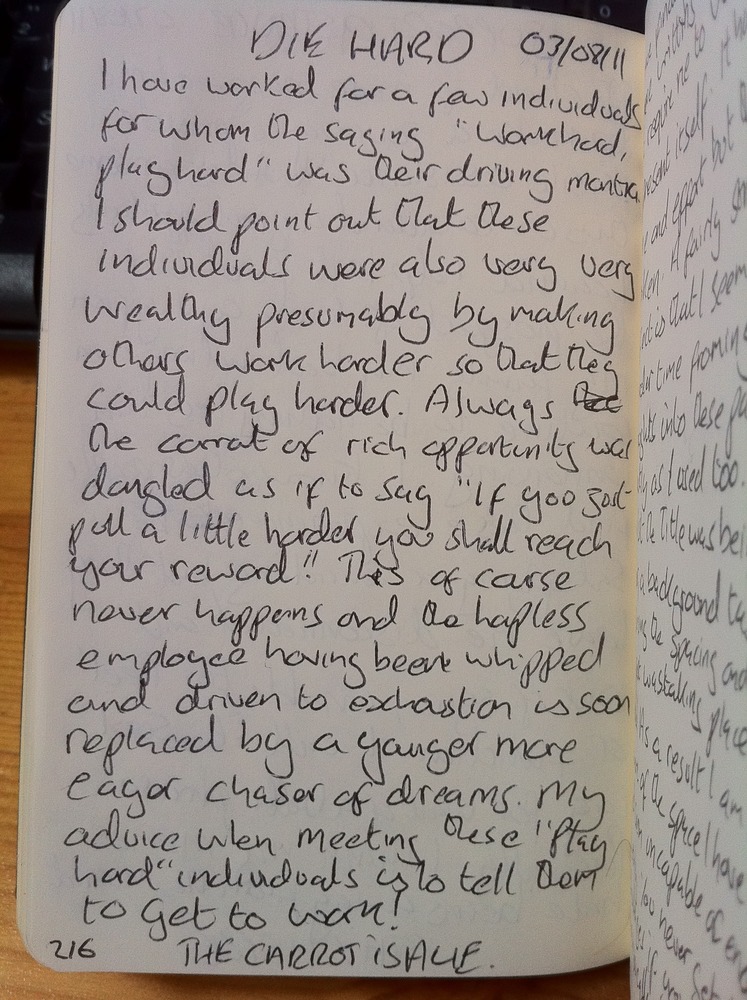 DIE HARD 03/08/11
I have worked for a few individuals
for whom the saying "Work hard,
play hard" was their driving mantra.
I should point out that these
individuals were also very very
wealthy presumably by making
others work harder so that they
could play harder. Always
the carrot of rich opportunity was
dangled as if to say "If you just
pull a little harder you shall reach
your reward!" This of course
never happens and the hapless
employee having been whipped
and driven to exhaustion is soon
replaced by a younger more
eager chaser of dreams. My
advice when meeting these "play
hard" individuals is to tell them
to get to work!
216 THE CARROT IS A LIE.
require me to
itself. It
and effort but
A fairly
is that I seem
time
into these
as I used too.
the Title was
a background
the spacing and
was taking place
As a result I am
of the space I have
incapable of
You never get
if